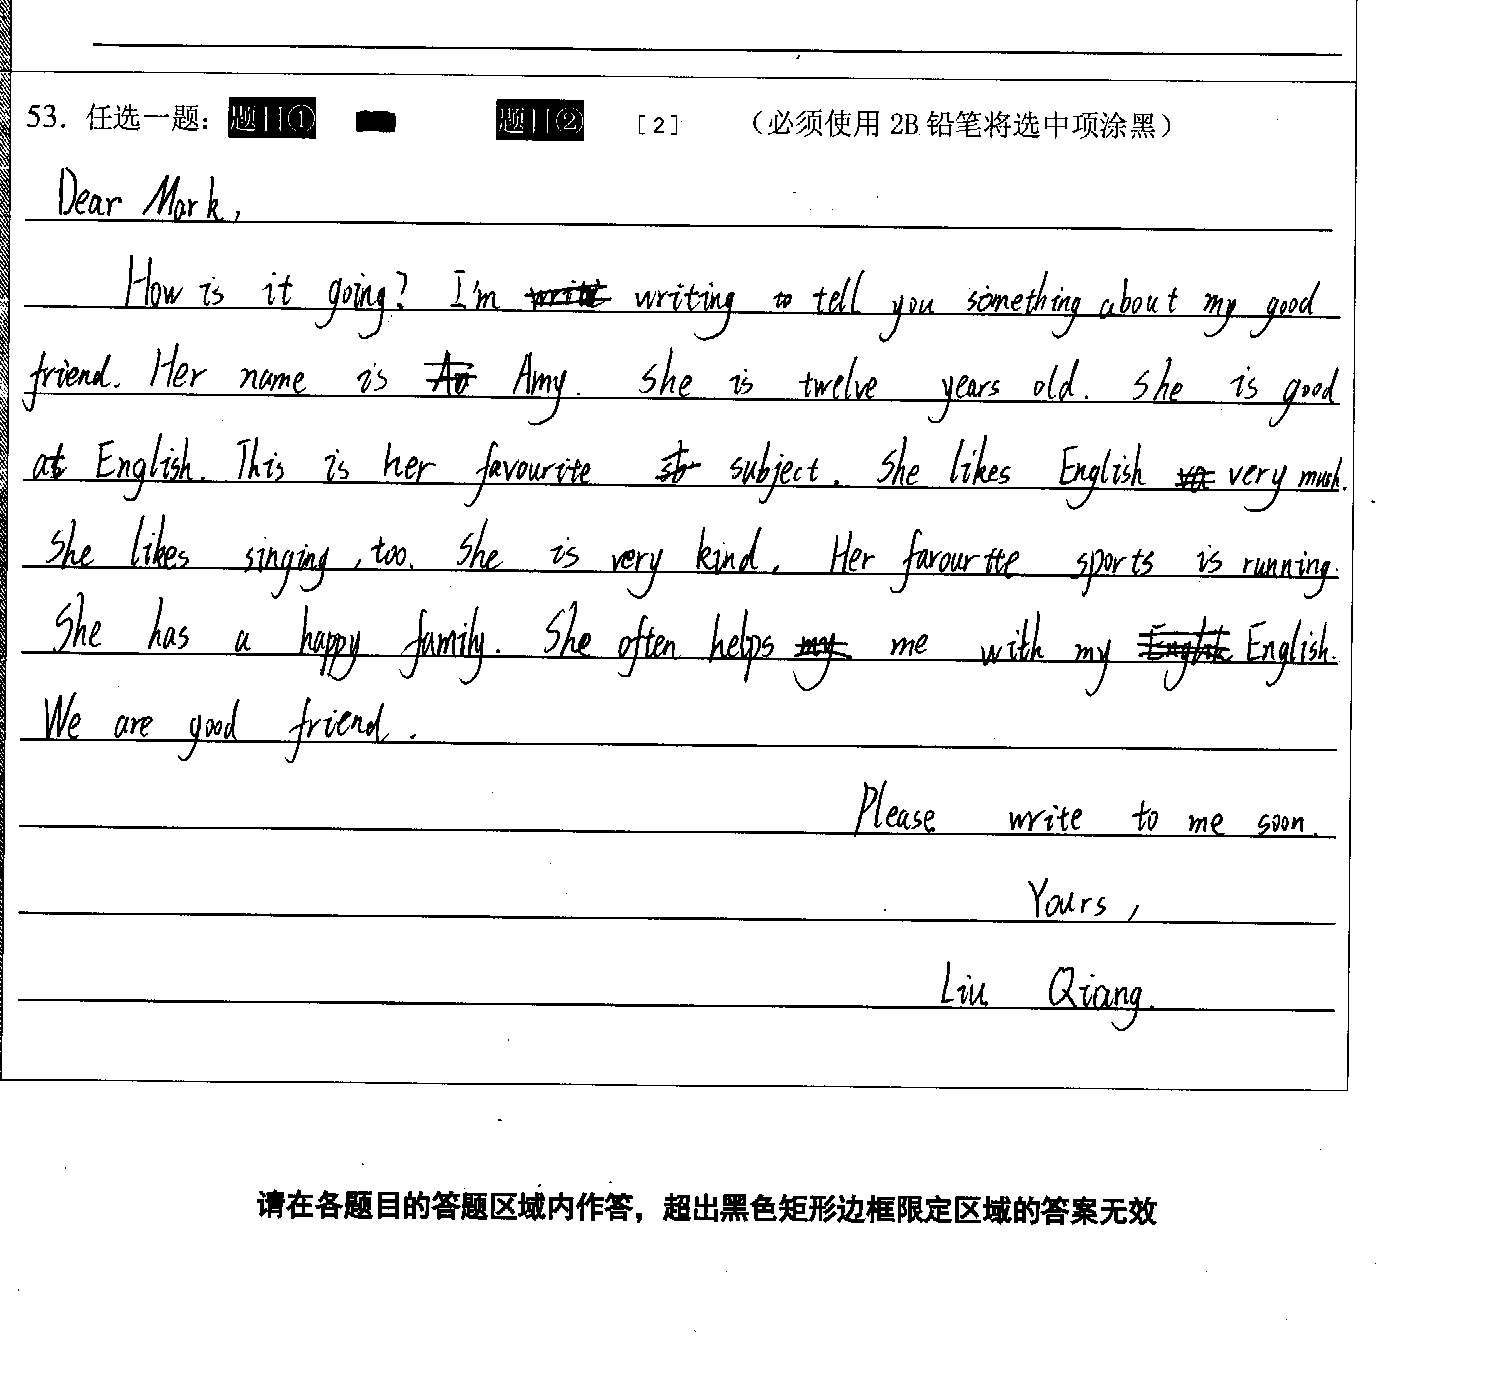 53. 任选一题： 题目① 题目② [2] （必须使用 2B 铅笔将选中项涂黑）
Dear Mark,
How is it going? I'm writing to tell you something about my good
friend. Her name is Amy. She is twelve years old. She is good
at English. This is her favourite subject. She likes English very much.
She likes singing, too. She is very kind. Her favourite sports is running.
She has a happy family. She often helps me with my English.
We are good friend.
Please write to me soon.
Yours,
Liu Qiang.
请在各题目的答题区域内作答，超出黑色矩形边框限定区域的答案无效